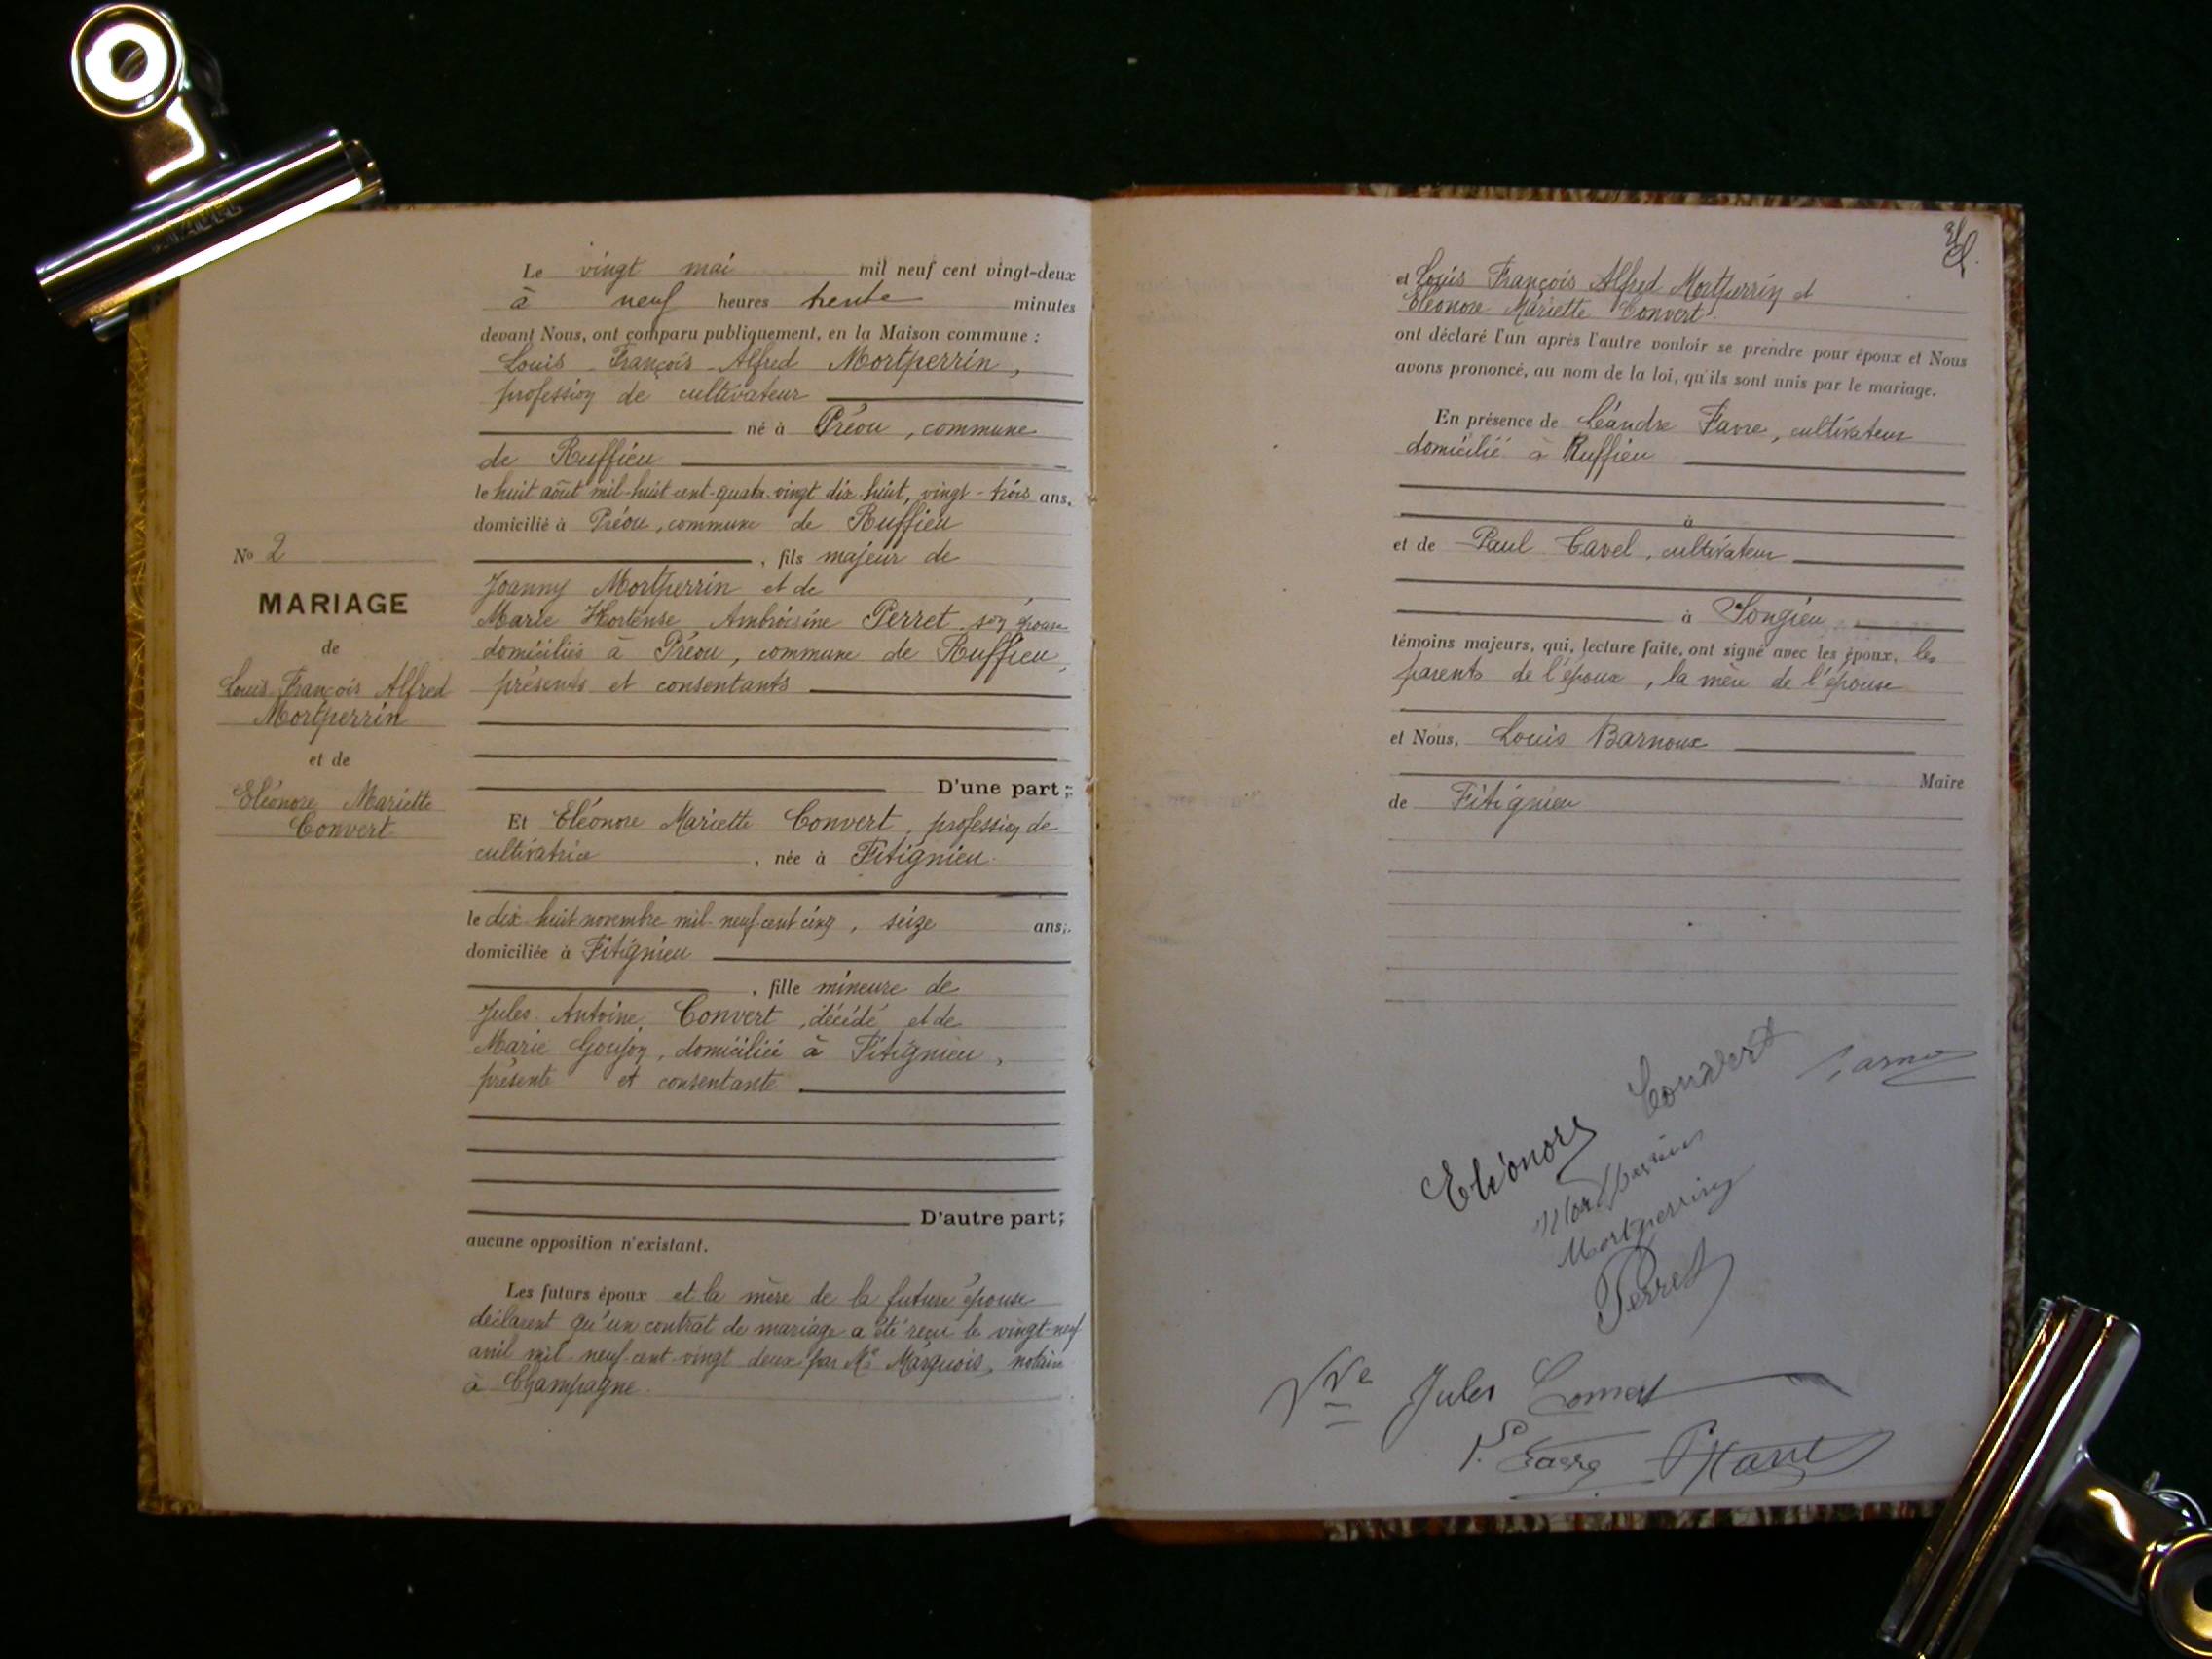 Le vingt mai mil neuf cent vingt-deux
à neuf heures trente minutes
devant Nous, ont comparu publiquement, en la Maison commune :
Louis François Alfred Mortperrin,
profession de cultivateur
né à Préou, commune
de Ruffieu
le huit août mil-huit cent-quatre-vingt dix-huit, vingt-trois ans,
domicilié à Préou, commune de Ruffieu
, fils majeur de
Joanny Mortperrin et de
Marie Hortense Ambroisine Perret son épouse
domiciliés à Préou, commune de Ruffieu,
présents et consentants
D'une part ;
Et Eléonore Mariette Convert, profession de
cultivatrice , née à Fitignieu.
le dix huit novembre mil-neuf-cent cinq, seize ans;
domiciliée à Fitignieu
, fille mineure de
Jules Antoine Convert, décédé et de
Marie Goujon, domiciliée à Fitignieu,
présente et consentante
D'autre part;
aucune opposition n'existant.
Les futurs époux et la mère de la future épouse
déclarent qu'un contrat de mariage a été reçu le vingt-neuf
avril mil-neuf-cent-vingt deux par Me Marquois, notaire
à Champagne.
No 2
MARIAGE
de
Louis François Alfred
Mortperrin
et de
Eléonore Mariette
Convert
et Louis François Alfred Mortperrin et
Eléonore Mariette Convert.
ont déclaré l'un après l'autre vouloir se prendre pour époux et Nous
avons prononcé, au nom de la loi, qu'ils sont unis par le mariage.
En présence de Léandre Favre, cultivateur
domicilié à Ruffieu
à
et de Paul Cavel, cultivateur
à Songieu
témoins majeurs, qui, lecture faite, ont signé avec les époux, les
parents de l'époux, la mère de l'épouse
et Nous, Louis Barnoux
Maire
de Fitignieu
Eléonore Convert
Mortperrin
Mortperrin
Perret
Vve Jules Convert